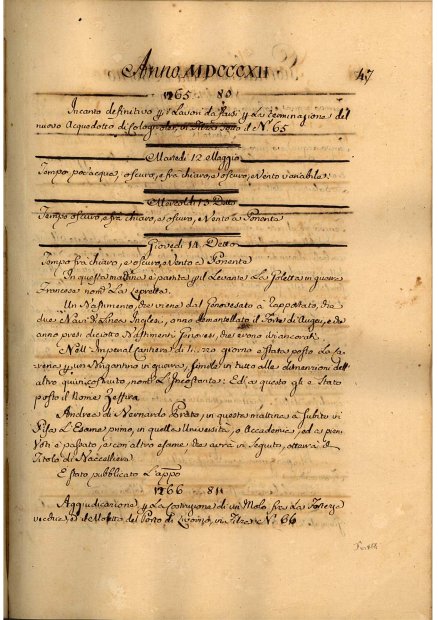 Anno MDCCCXII
47
1765 80
Incanto definitivo p i Lavori da farsi p La terminazione del
nuovo Acquedotto di Colognole, in Filza sotto il N. 65
Martedi 12 Maggio
Tempo pod'acqua, oscuro, e fra chiaro, e oscuro, e Vento variabile
Mercoldi 13 Detto
Tempo oscuro, e fra chiaro, e oscuro, e Vento a Ponente
Giovedi 14 Detto
Tempo fra chiaro, e oscuro, e Vento a Ponente
In questa mattina è partita p il Levante La Goletta in guerra
Francese nom.ta La
Un Bastimento, che viene dal Genovesato à rapportato, che
due Navi di Linea Inglesi, anno smantellato il Forte di e
anno presi diciotto Bastimenti Genovesi, che erano
Nell' Imperial Cantiere di giorno è stata posta La
rena p un Brigantino in guerra, simile in tutto alle dimenzioni dell'
altro quivi costruito, nom.to L'Incostante: Ed a questo gli è stato
posto il Nome Zeffiro
Andrea di Bernardo Prato, in questa mattina à subito in
Pisa L'Esame primo, in quella Università, o Accademia, ed a pieni
Voti è passato, e con altro esame, che avrà in seguito, otterrà il
Titolo di Baccelliere
E stato pubblicato L'appo
1766 81
Aggiudicazione p La Costruzione di un Molo, fra La Fortezza
vecchia, e il Moletto del Porto di Livorno, in Filza N. 66